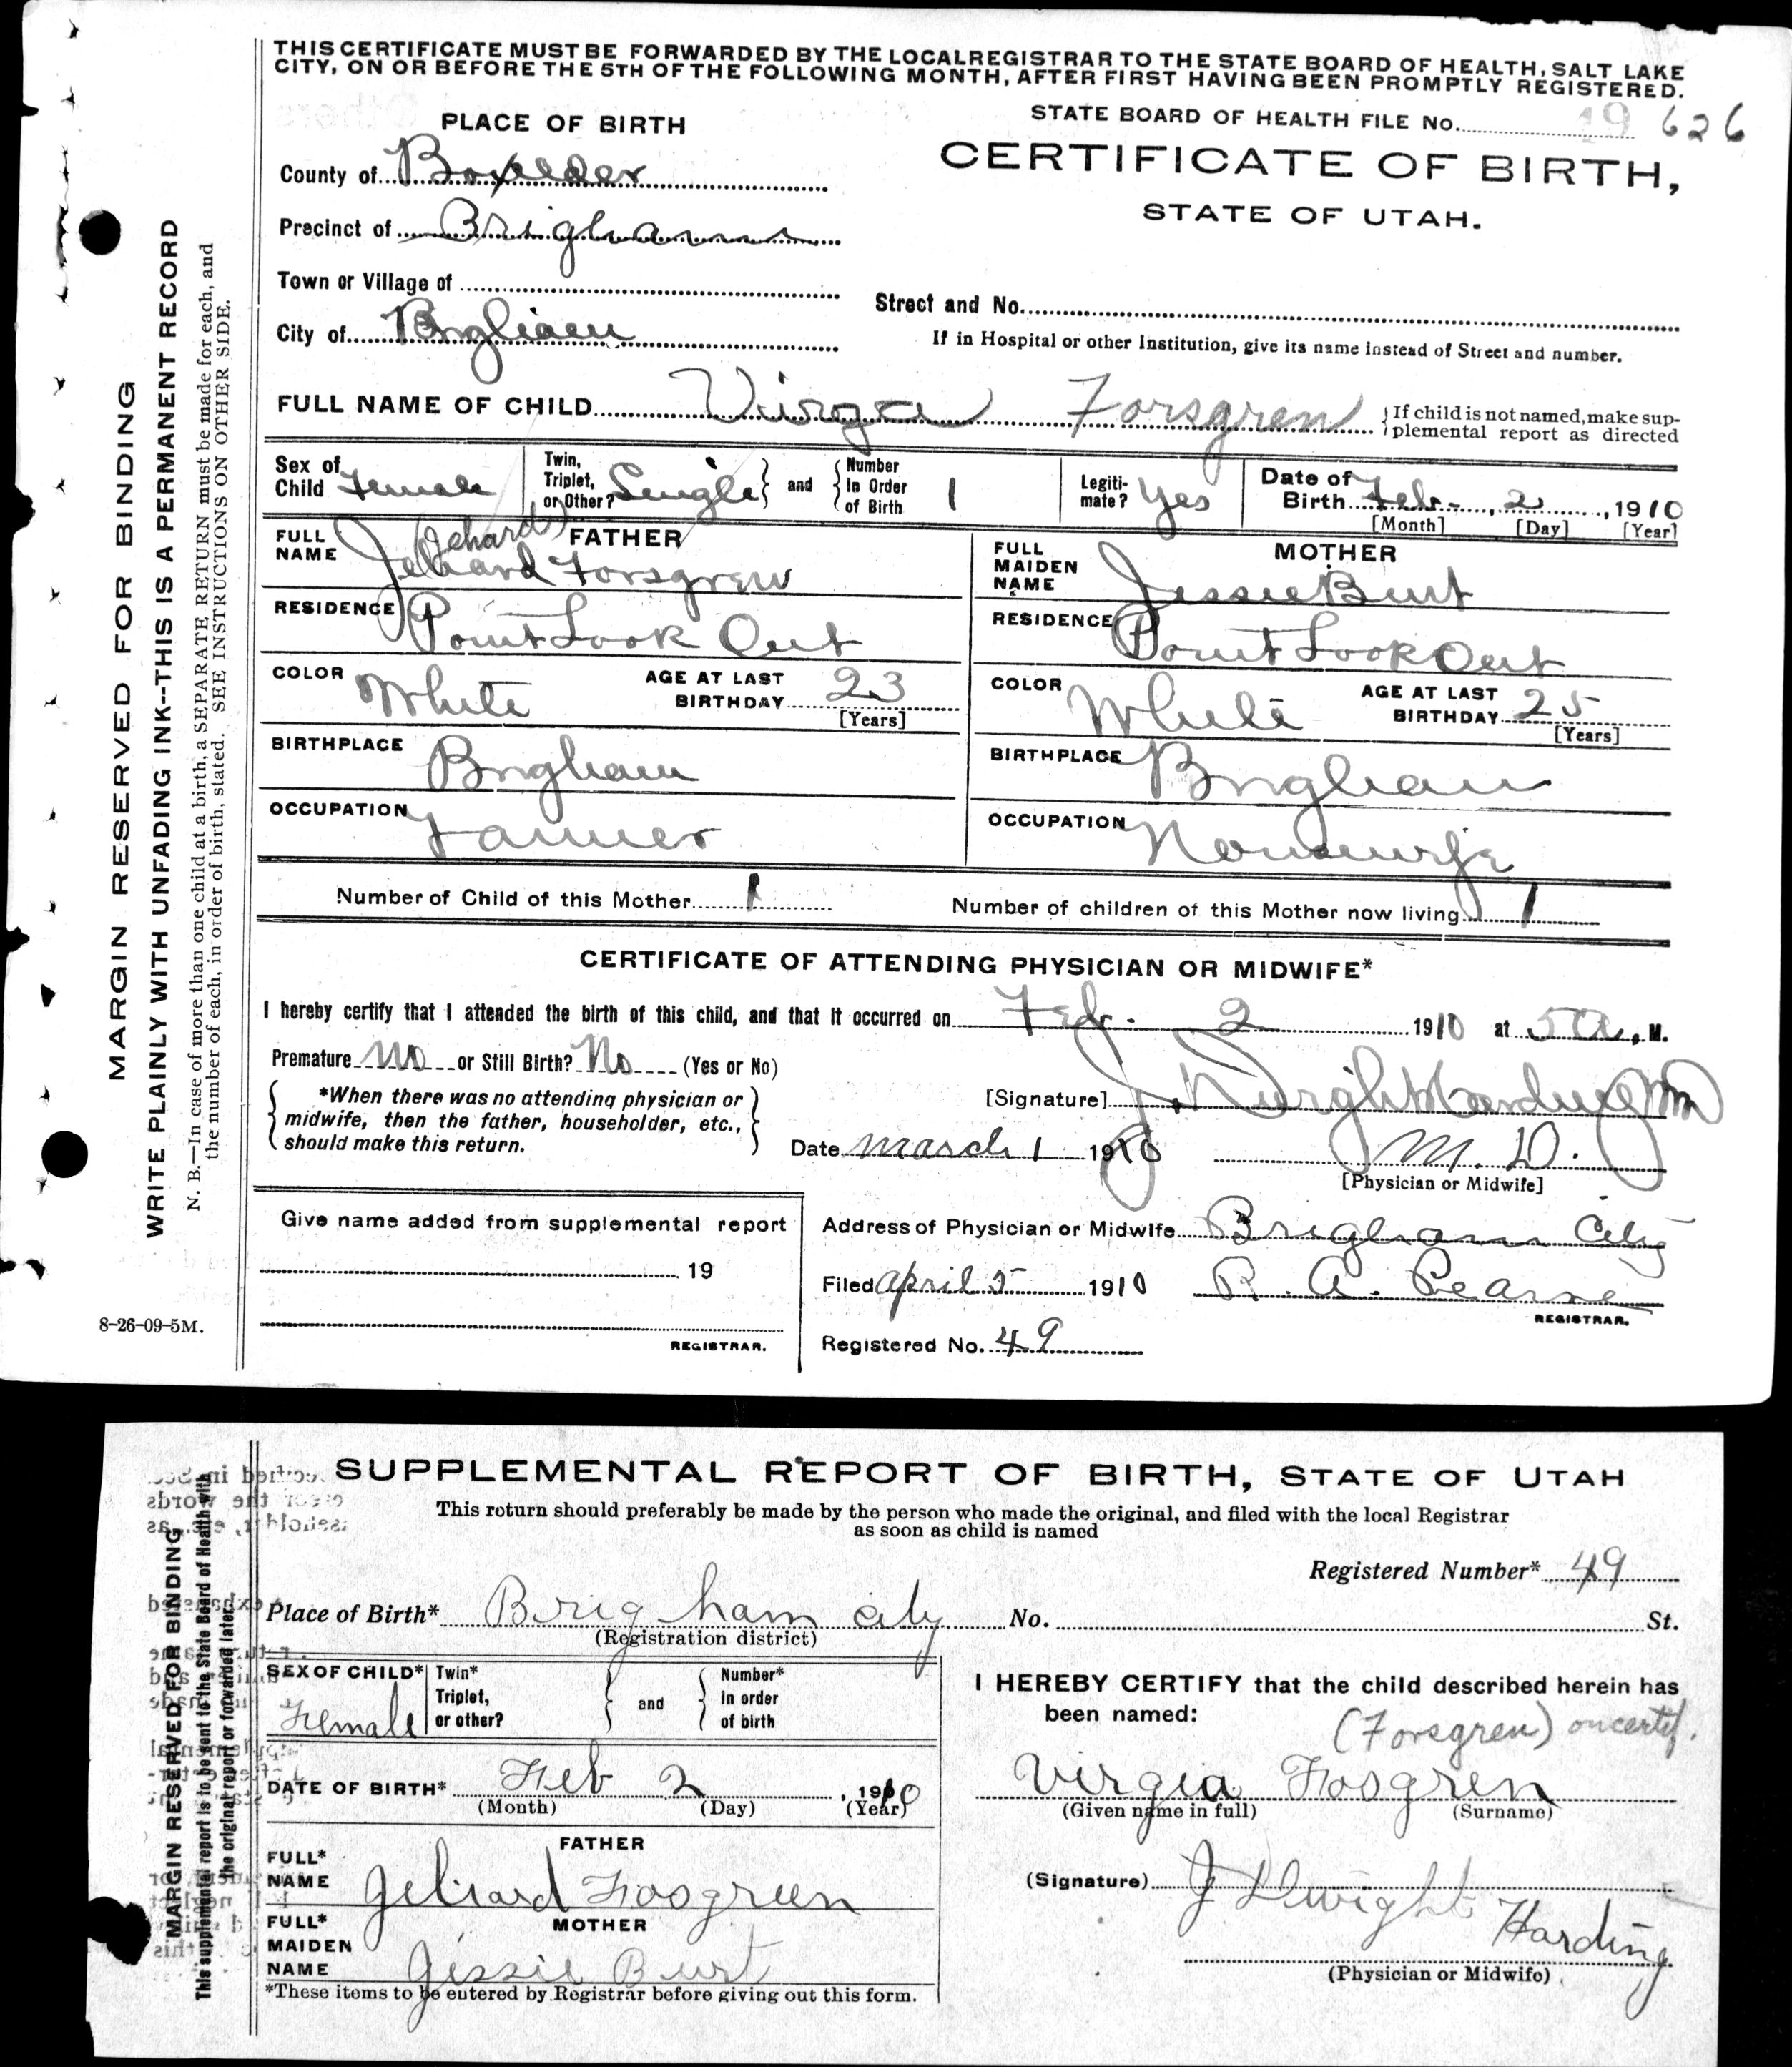 THIS CERTIFICATE MUST BE FORWARDED BY THE LOCAL REGISTRAR TO THE STATE BOARD OF HEALTH, SALT LAKE
CITY, ON OR BEFORE THE 5TH OF THE FOLLOWING MONTH, AFTER FIRST HAVING BEEN PROMPTLY REGISTERED.
STATE BOARD OF HEALTH FILE No. 19 626
PLACE OF BIRTH
CERTIFICATE OF BIRTH,
STATE OF UTAH.
County of Boxelder
Precinct of Brigham
Town or Village of
Street and No.
City of Brigham
If in Hospital or other Institution, give its name instead of Street and number.
FULL NAME OF CHILD Virga Forsgren
If child is not named, make supplemental report as directed
Sex of Child Female
Twin, Triplet, or Other? Single and Number In Order of Birth 1
Legitimate? Yes
Date of Birth Feb. 2, 1910
[Month] [Day] [Year]
FATHER
FULL NAME Jehard Forsgren
(Jehard)
RESIDENCE Point Look Out
COLOR White
AGE AT LAST BIRTHDAY 23
[Years]
BIRTHPLACE Brigham
OCCUPATION Farmer
MOTHER
FULL MAIDEN NAME Jessie Burt
RESIDENCE Point Look Out
COLOR White
AGE AT LAST BIRTHDAY 25
[Years]
BIRTHPLACE Brigham
OCCUPATION Housewife
Number of Child of this Mother 1
Number of children of this Mother now living 1
CERTIFICATE OF ATTENDING PHYSICIAN OR MIDWIFE*
I hereby certify that I attended the birth of this child, and that it occurred on Feb. 2 1910 at 5 A. M.
Premature No or Still Birth? No (Yes or No)
*When there was no attending physician or
midwife, then the father, householder, etc.,
should make this return.
[Signature] J Dwight Harding
Date March 1 1910
M. D.
[Physician or Midwife]
Give name added from supplemental report
19
REGISTRAR.
Address of Physician or Midwife Brigham City
Filed April 5 1910 R. A. Pearse
REGISTRAR.
Registered No. 49
8-26-09-5M.
MARGIN RESERVED FOR BINDING
WRITE PLAINLY WITH UNFADING INK--THIS IS A PERMANENT RECORD
N. B.—In case of more than one child at a birth, a SEPARATE RETURN must be made for each, and
the number of each, in order of birth, stated. SEE INSTRUCTIONS ON OTHER SIDE.
SUPPLEMENTAL REPORT OF BIRTH, STATE OF UTAH
This return should preferably be made by the person who made the original, and filed with the local Registrar
as soon as child is named
Registered Number* 49
Place of Birth* Brigham City No. St.
(Registration district)
SEX OF CHILD* Female
Twin* Triplet, or other? and Number* In order of birth
DATE OF BIRTH* Feb 2, 1910
(Month) (Day) (Year)
FATHER
FULL* NAME Jehard Fosgreen
MOTHER
FULL* MAIDEN NAME Jessie Burt
*These items to be entered by Registrar before giving out this form.
I HEREBY CERTIFY that the child described herein has
been named:
(Forsgren) on certif.
Virgia Fosgren
(Given name in full) (Surname)
(Signature) J Dwight Harding
(Physician or Midwife)
MARGIN RESERVED FOR BINDING
This supplemental report is to be sent to the State Board of Health with
the original report or forwarded later.